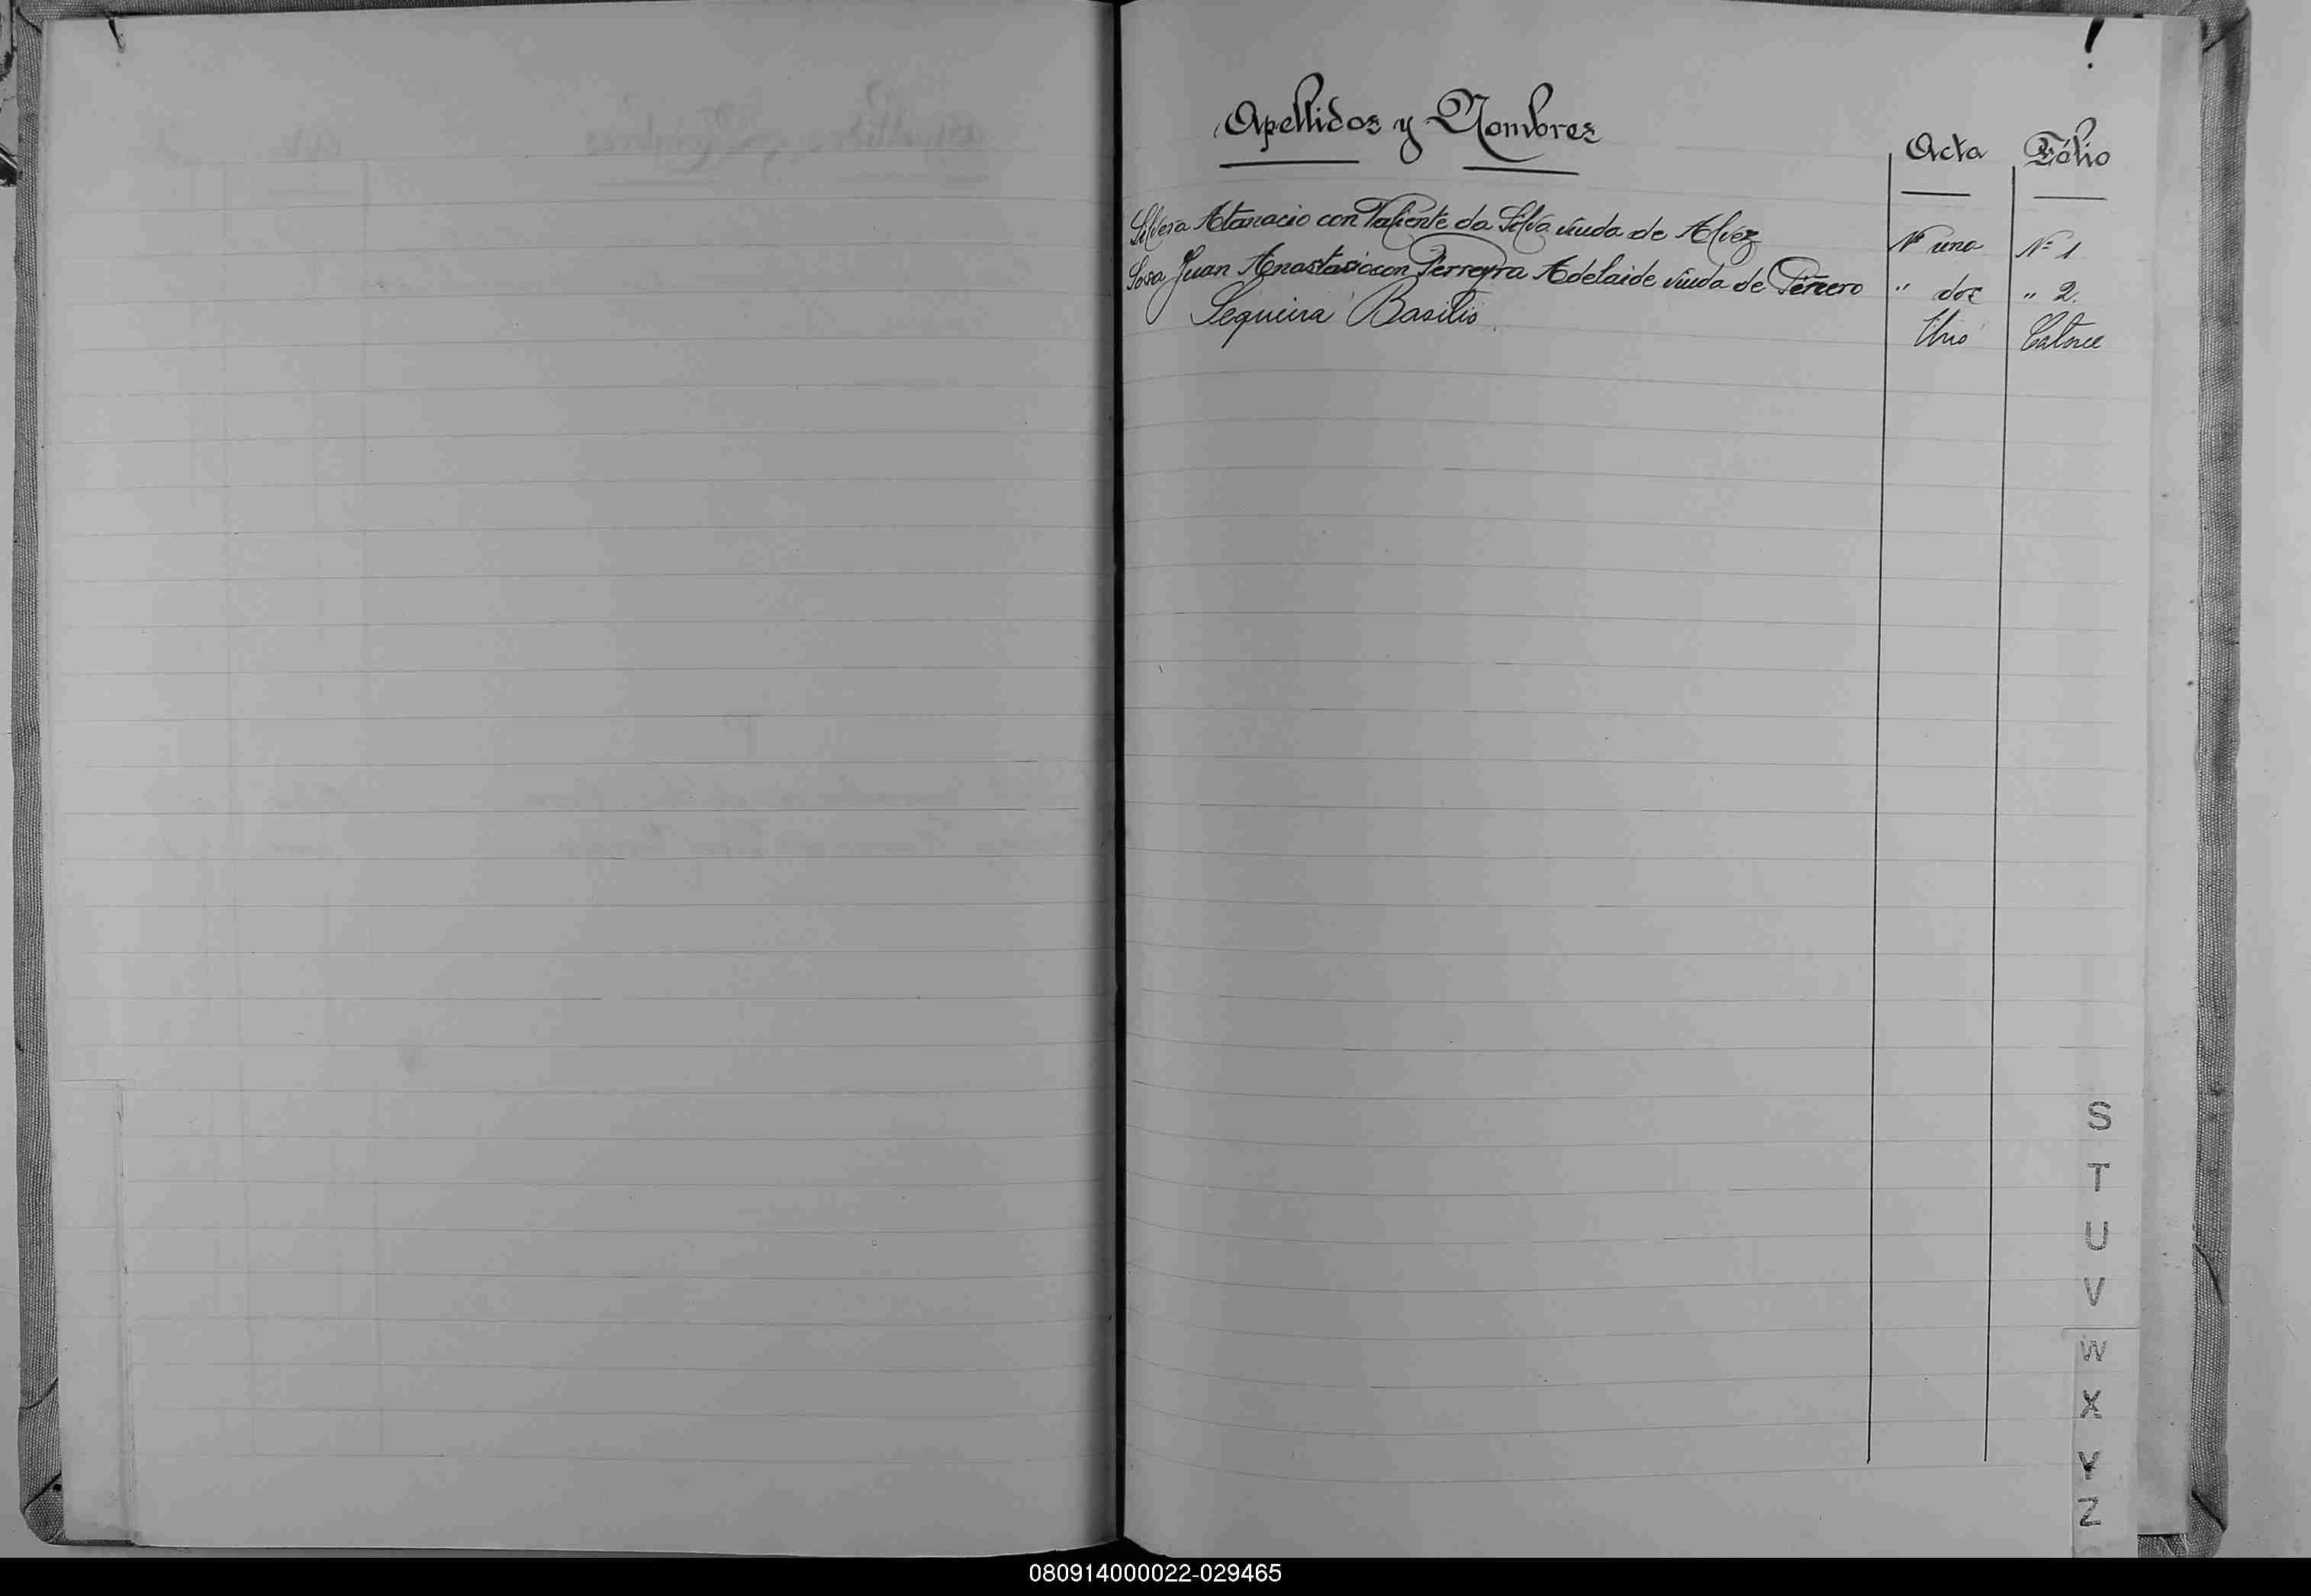 Apellidos y Nombres
Acta Fólio
Silvera Atanacio con Valiente da Silva viuda de Alvez Nº uno Nº 1
Sosa Juan Anastasio con Ferreyra Adelaide viuda de Tercero " dos " 2.
Sequeira Basilio Uno Catorce
S
T
U
V
W
X
Y
Z
080914000022-029465